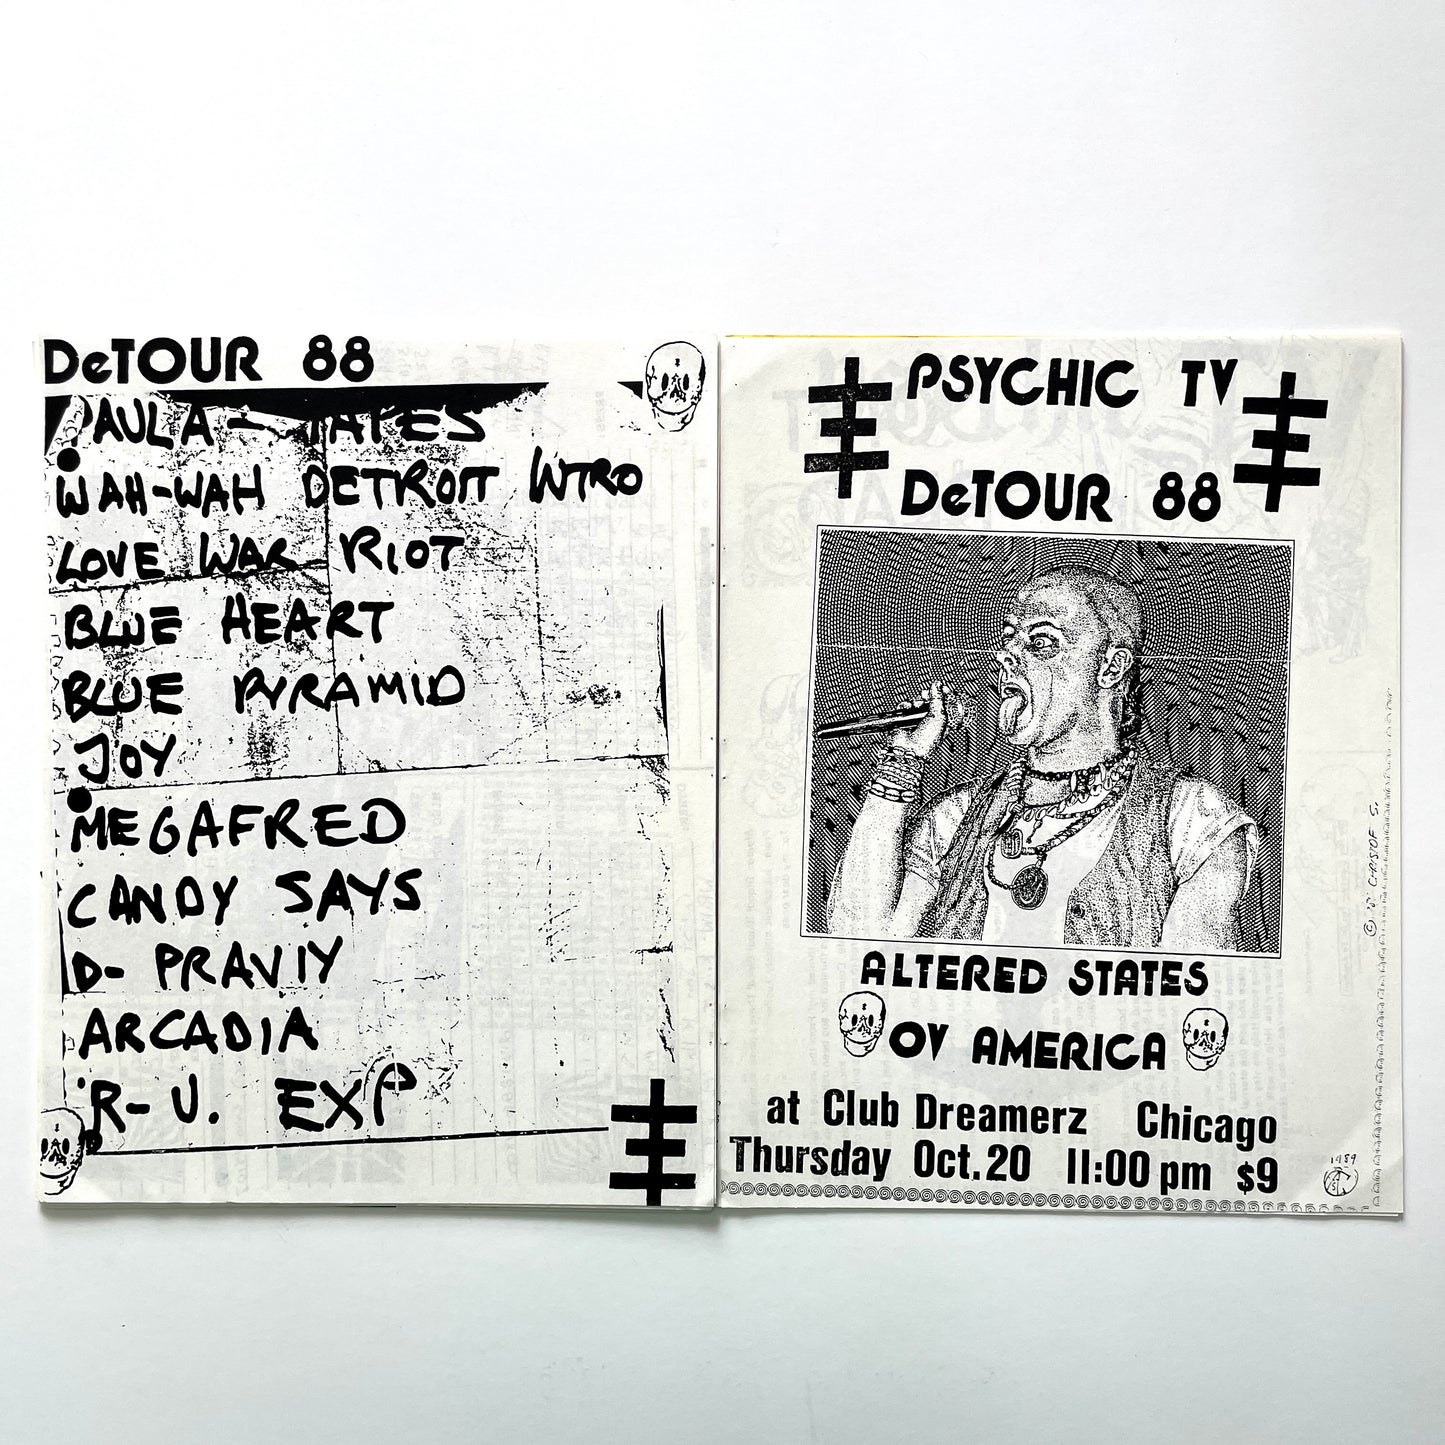 DeTOUR 88
PAULA - YATES
WAH-WAH DETROIT INTRO
LOVE WAR RIOT
BLUE HEART
BLUE PYRAMID
JOY
MEGAFRED
CANDY SAYS
D- PRAVIY
ARCADIA
R- U. EXP
PSYCHIC TV
DeTOUR 88
ALTERED STATES
OV AMERICA
at Club Dreamerz Chicago
Thursday Oct. 20 11:00 pm $9
1989